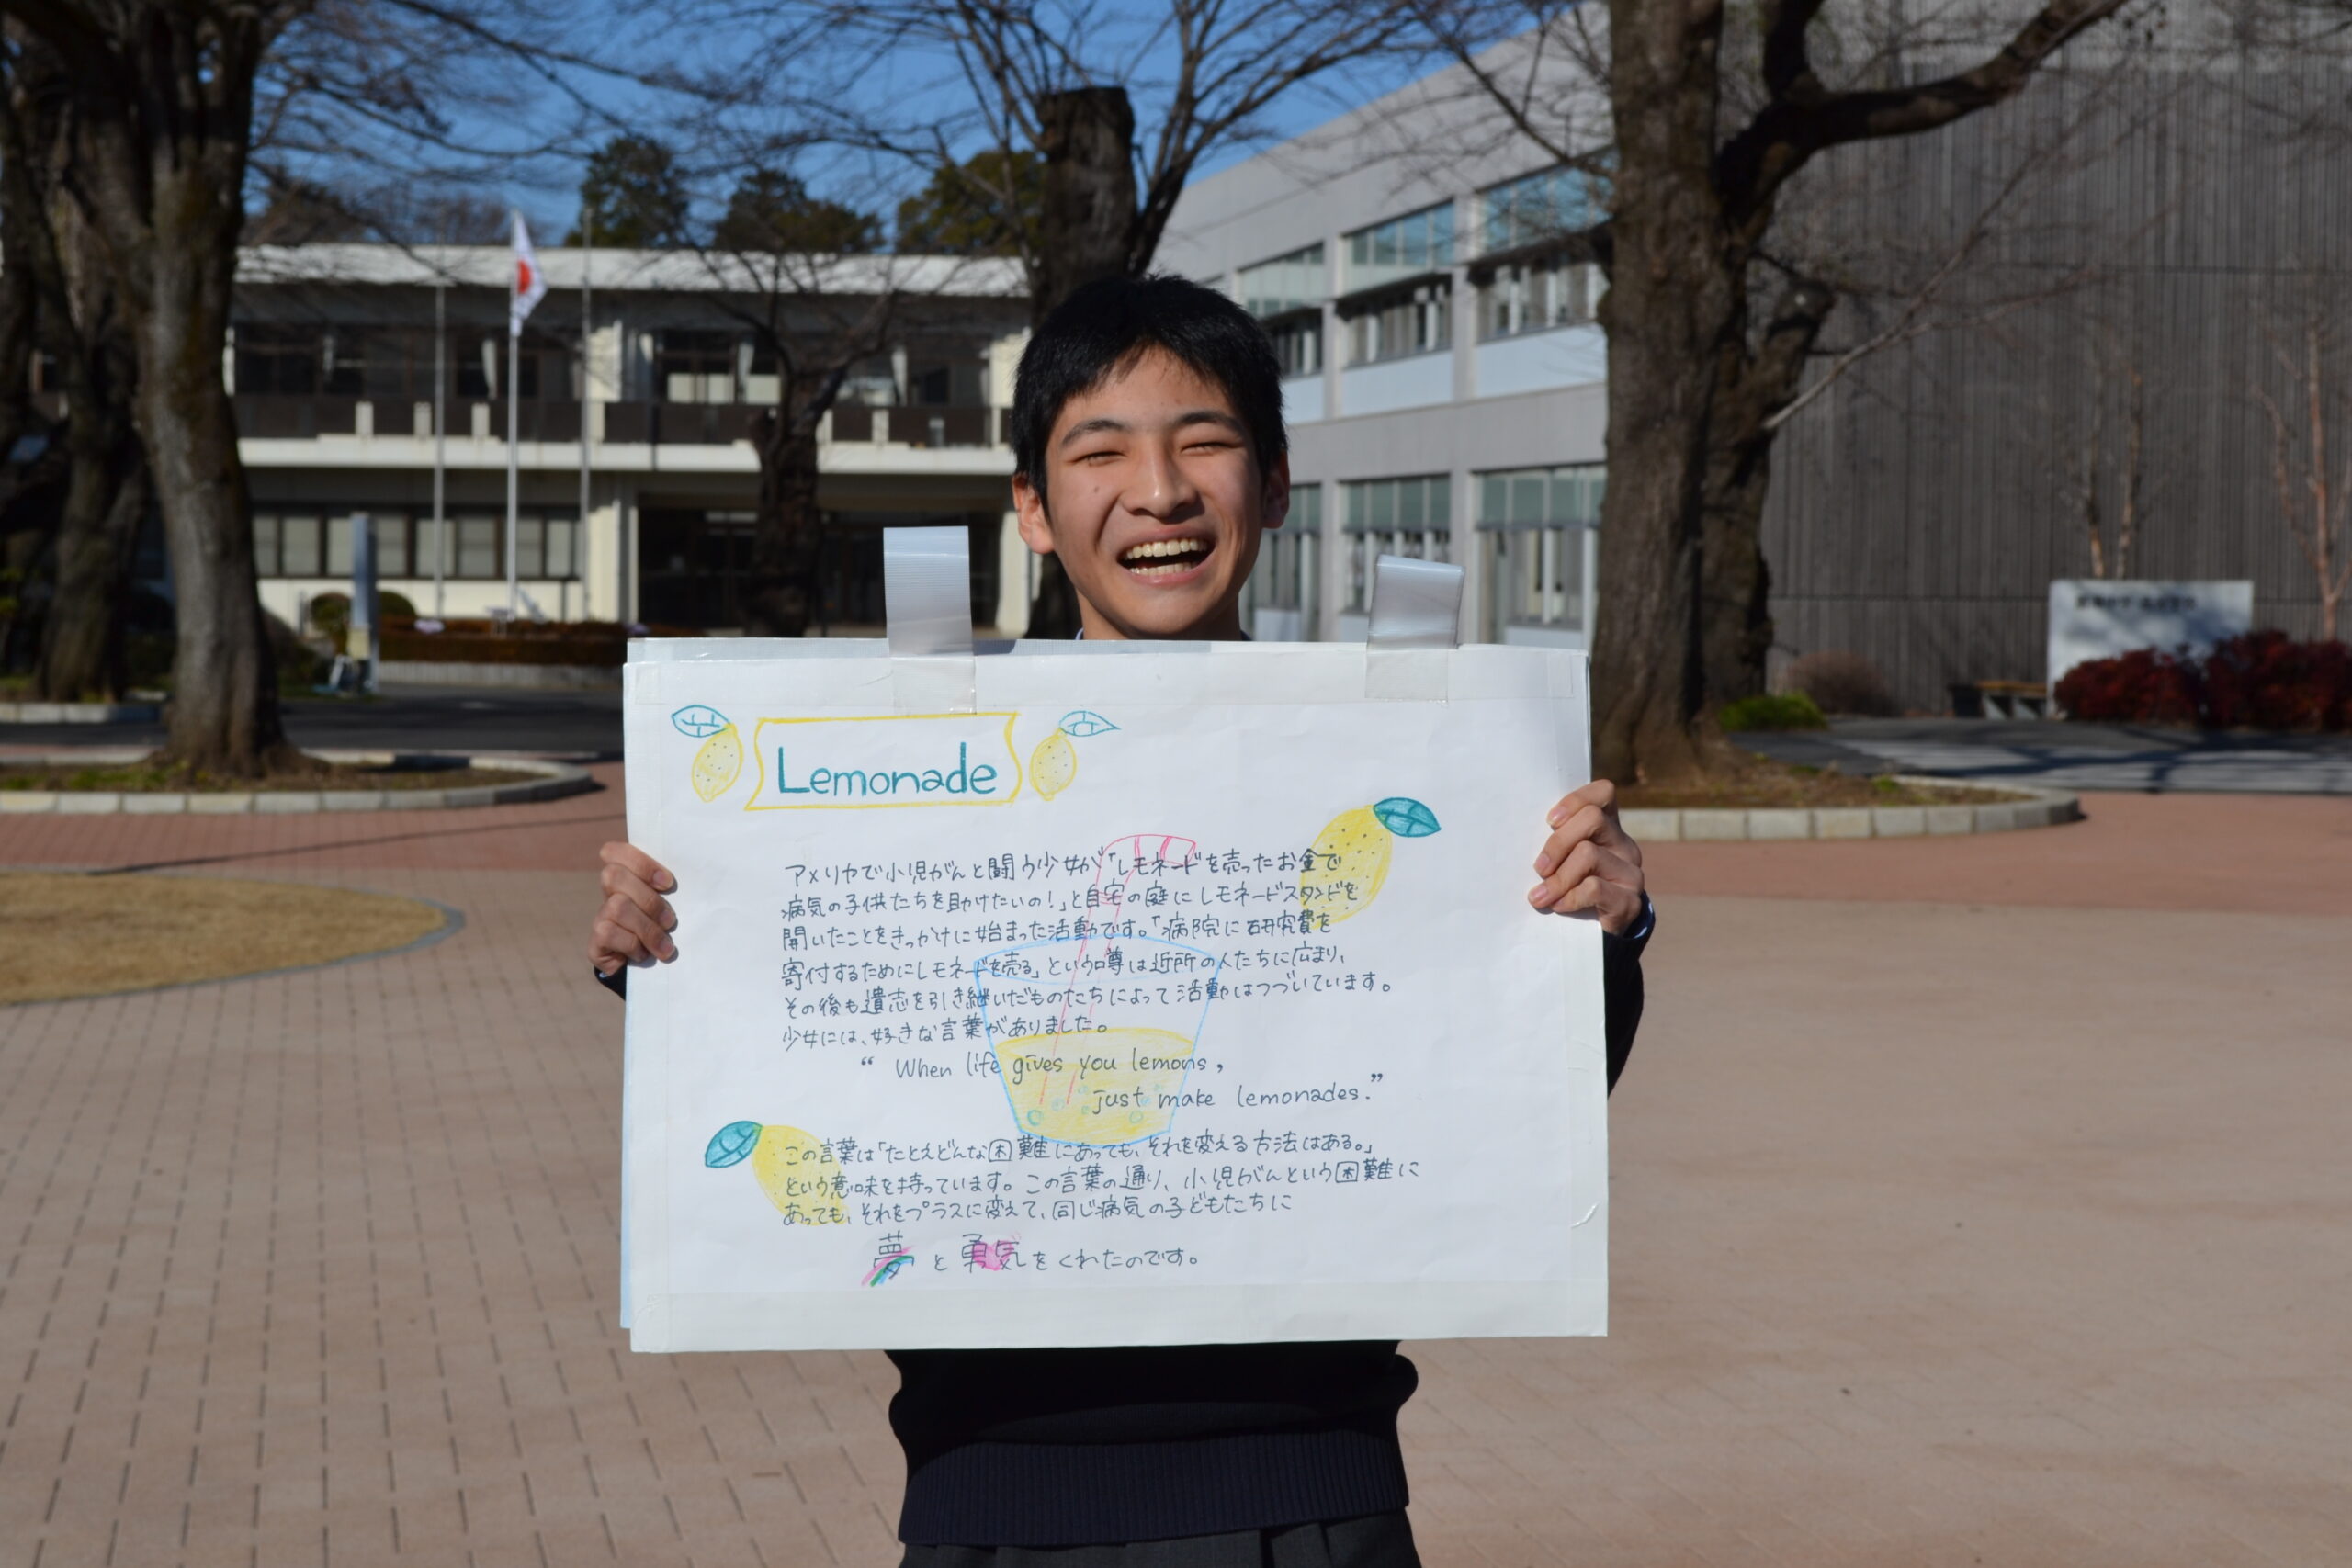 Lemonade
アメリカで小児がんと闘う少女が「レモネードを売ったお金で
病気の子供たちを助けたいの！」と自宅の庭にレモネードスタンドを
開いたことをきっかけに始まった活動です。「病院に研究費を
寄付するためにレモネードを売る」という噂は近所の人たちに広まり、
その後も遺志を引き継いだものたちによって活動はつづいています。
少女には、好きな言葉がありました。
“ When life gives you lemons,
just make lemonades.”
この言葉は「たとえどんな困難にあっても、それを変える方法はある。」
という意味を持っています。この言葉の通り、小児がんという困難に
あっても、それをプラスに変えて、同じ病気の子どもたちに
夢と勇気をくれたのです。